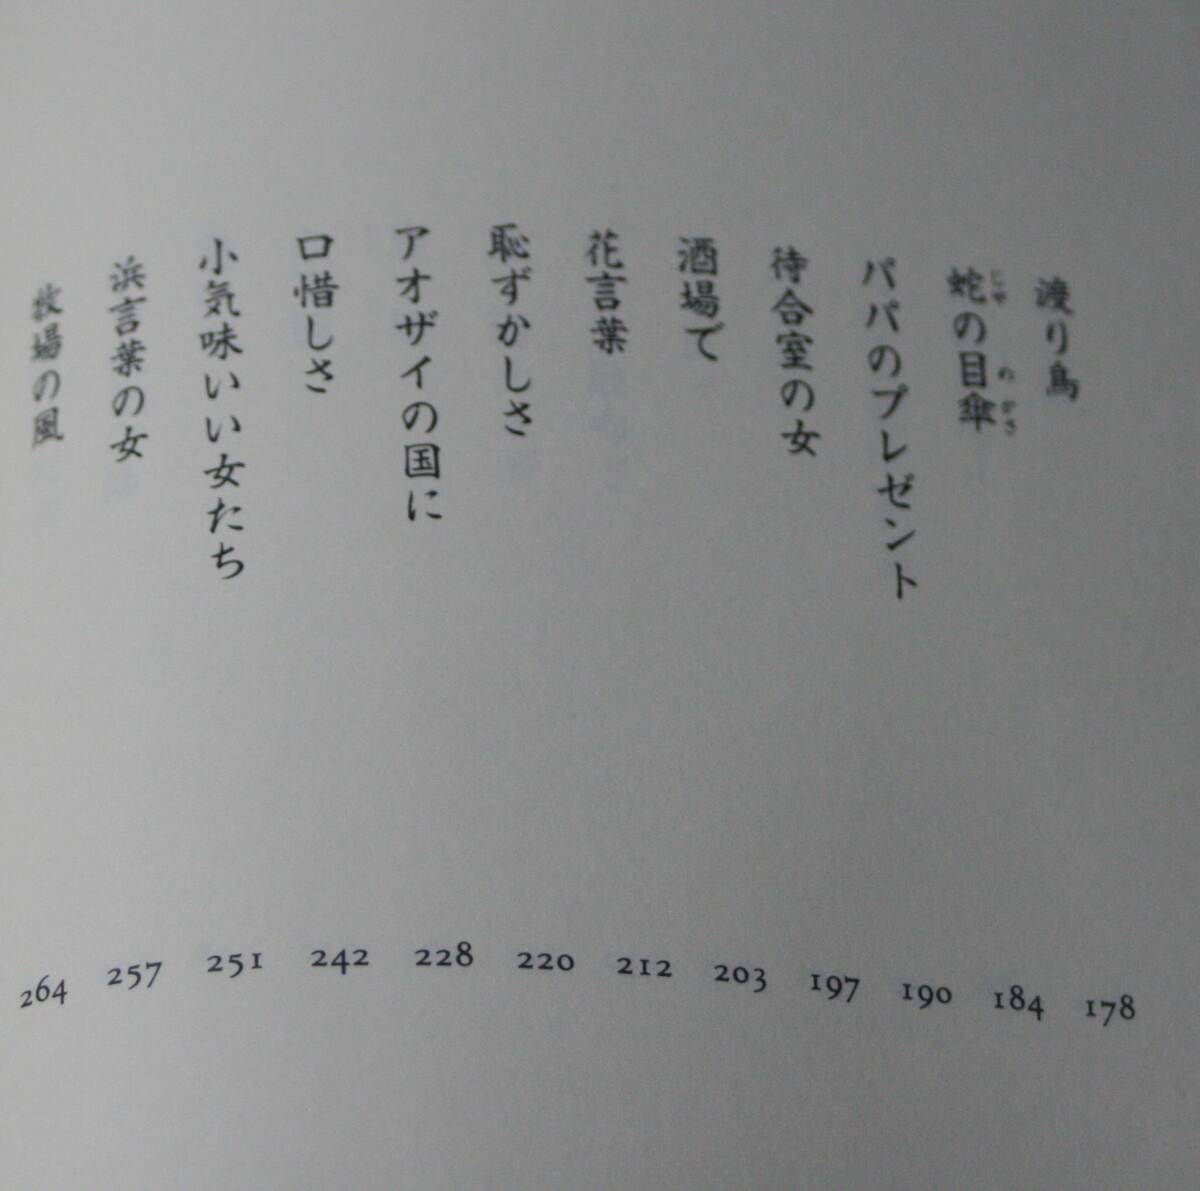 渡り鳥 178
蛇の目傘 184
パパのプレゼント 190
待合室の女 197
酒場で 203
花言葉 212
恥ずかしさ 220
アオザイの国に 228
口惜しさ 242
小気味いい女たち 251
浜言葉の女 257
牧場の風 264